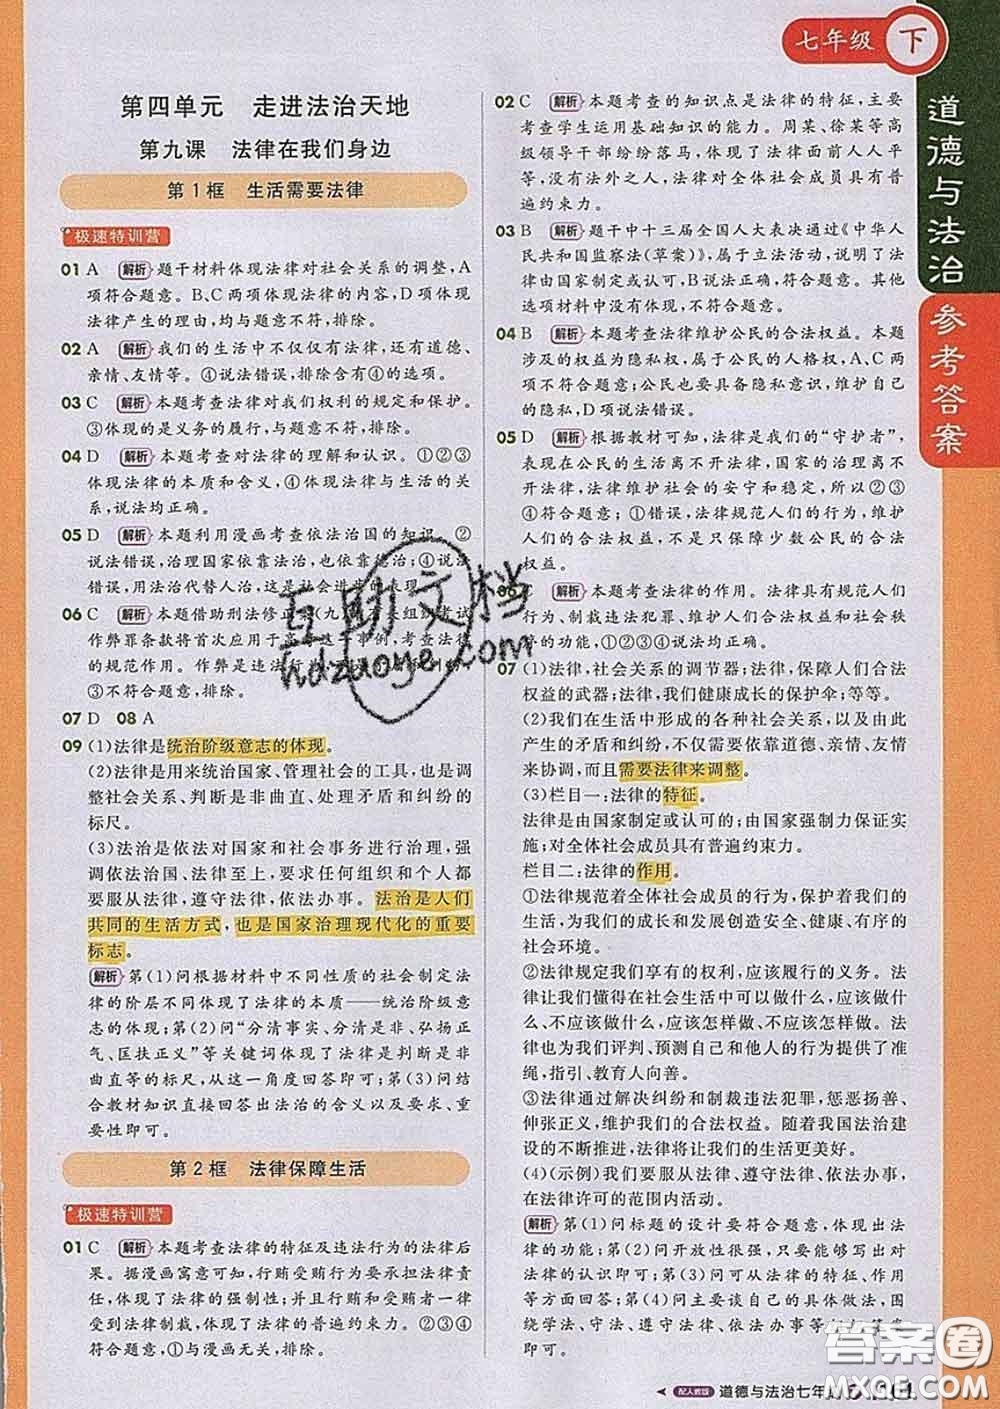 七年级 下
道德与法治
参考答案
第四单元 走进法治天地
第九课 法律在我们身边
第1框 生活需要法律
极速特训营
01 A 解析 题干材料体现法律对社会关系的调整,A
项符合题意。B、C两项体现法律的内容,D项体现
法律产生的理由,均与题意不符,排除。
02 A 解析 我们的生活中不仅仅有法律,还有道德、
亲情、友情等。④说法错误,排除含有④的选项。
03 C 解析 本题考查法律对我们权利的规定和保护。
③体现的是义务的履行,与题干不符,排除。
04 D 解析 本题考查对法律的理解和认识。①②③
体现法律的本质和含义,④体现法律与生活的关
系,说法均正确。
05 D 解析 本题利用漫画考查依法治国的知识。②
说法错误,治理国家依靠法治,也依靠德治;④说法
错误,用法治代替人治,这是社会进步的表现。
06 C 解析 本题借助刑法修正案(九)将有关组织考试
作弊罪条款将首次应用于高考这一事例,考查法律
的规范作用。作弊是违法行为,
③不符合题意,排除。
07 D 08 A
09 (1)法律是统治阶级意志的体现。
(2)法律是用来统治国家、管理社会的工具,也是调
整社会关系、判断是非曲直、处理矛盾和纠纷的
标尺。
(3)法治是依法对国家和社会事务进行治理,强
调依法治国、法律至上,要求任何组织和个人都
要服从法律,遵守法律,依法办事。法治是人们
共同的生活方式,也是国家治理现代化的重要
标志。
解析 第(1)问根据材料中不同性质的社会制定法
律的阶层不同体现了法律的本质——统治阶级意
志的体现;第(2)问“分清事实、分清是非、弘扬正
气、匡扶正义”等关键词体现了法律是判断是非
曲直等的标尺,从这一角度回答即可;第(3)问结
合教材知识直接回答出法治的含义以及要求、重
要性即可。
第2框 法律保障生活
极速特训营
01 C 解析 本题考查法律的特征及违法行为的法律后
果。据漫画寓意可知,行贿受贿行为要承担法律责
任,体现了法律的强制性;并且行贿和受贿者一律
受到法律制裁,体现了法律的普遍约束力。②③④
符合题意,①与漫画无关,排除。
02 C 解析 本题考查的知识点是法律的特征,主要
考查学生运用基础知识的能力。周某、徐某等高
级领导干部纷纷落马,体现了法律面前人人平
等,没有法外之人,法律对全体社会成员具有普
遍约束力。
03 B 解析 题干中十三届全国人大表决通过《中华人
民共和国监察法(草案)》,属于立法活动,说明了法
律由国家制定或认可,B说法正确,符合题意。其他
选项材料中没有体现,不符合题意。
04 B 解析 本题考查法律维护公民的合法权益。本题
涉及的权益为隐私权,属于公民的人格权,A、C两
项不符合题意;公民也要提高隐私意识,维护自己
的隐私,D项说法错误。
05 D 解析 根据教材可知,法律是我们的“守护者”,
表现在公民的生活离不开法律,国家的治理离不
开法律,法律维护社会的安宁和稳定,所以②③
④符合题意;①错误,法律规范人们的行为,保障
人们的合法权益,不是只保障少数公民的合法
权益。
06 C 解析 本题考查法律的作用。法律具有规范人们
行为、制裁违法犯罪、维护人们合法权益和社会秩
序的功能,①②③④说法均正确。
07 (1)法律,社会关系的调节器;法律,保障人们合法
权益的武器;法律,我们健康成长的保护伞;等等。
(2)我们在生活中形成的各种社会关系,以及由此
产生的矛盾和纠纷,不仅需要依靠道德、亲情、友情
来协调,而且需要法律来调整。
(3)栏目一:法律的特征。
法律是由国家制定或认可的;由国家强制力保证实
施;对全体社会成员具有普遍约束力。
栏目二:法律的作用。
①法律规范着全体社会成员的行为,保护着我们的
生活,为我们的成长和发展创造安全、健康、有序的
社会环境。
②法律规定我们享有的权利,应该履行的义务。法
律让我们懂得在社会生活中可以做什么,应该做什
么、不应该做什么,应该怎样做、不应该怎样做。法
律也为我们评判、预测自己和他人的行为提供了准
绳,指引、教育人向善。
③法律通过解决纠纷和制裁违法犯罪,惩恶扬善、
伸张正义,维护我们的合法权益。随着我国法治建
设的不断推进,法律将让我们的生活更美好。
(4)(示例)我们要服从法律、遵守法律、依法办事,
在法律许可的范围内活动。
解析 第(1)问标题的设计要符合题意,体现出法
律的功能;第(2)问开放性很强,只要能体现出对
法律的认识即可;第(3)问可从法律的特征、作用
等方面回答;第(4)问主要谈自己的具体做法,围
绕学法、守法、遵守法律、依法办事等
互助文档
hdzuoye.com
答案圈
MXQE.COM
配人教版 道德与法治七年